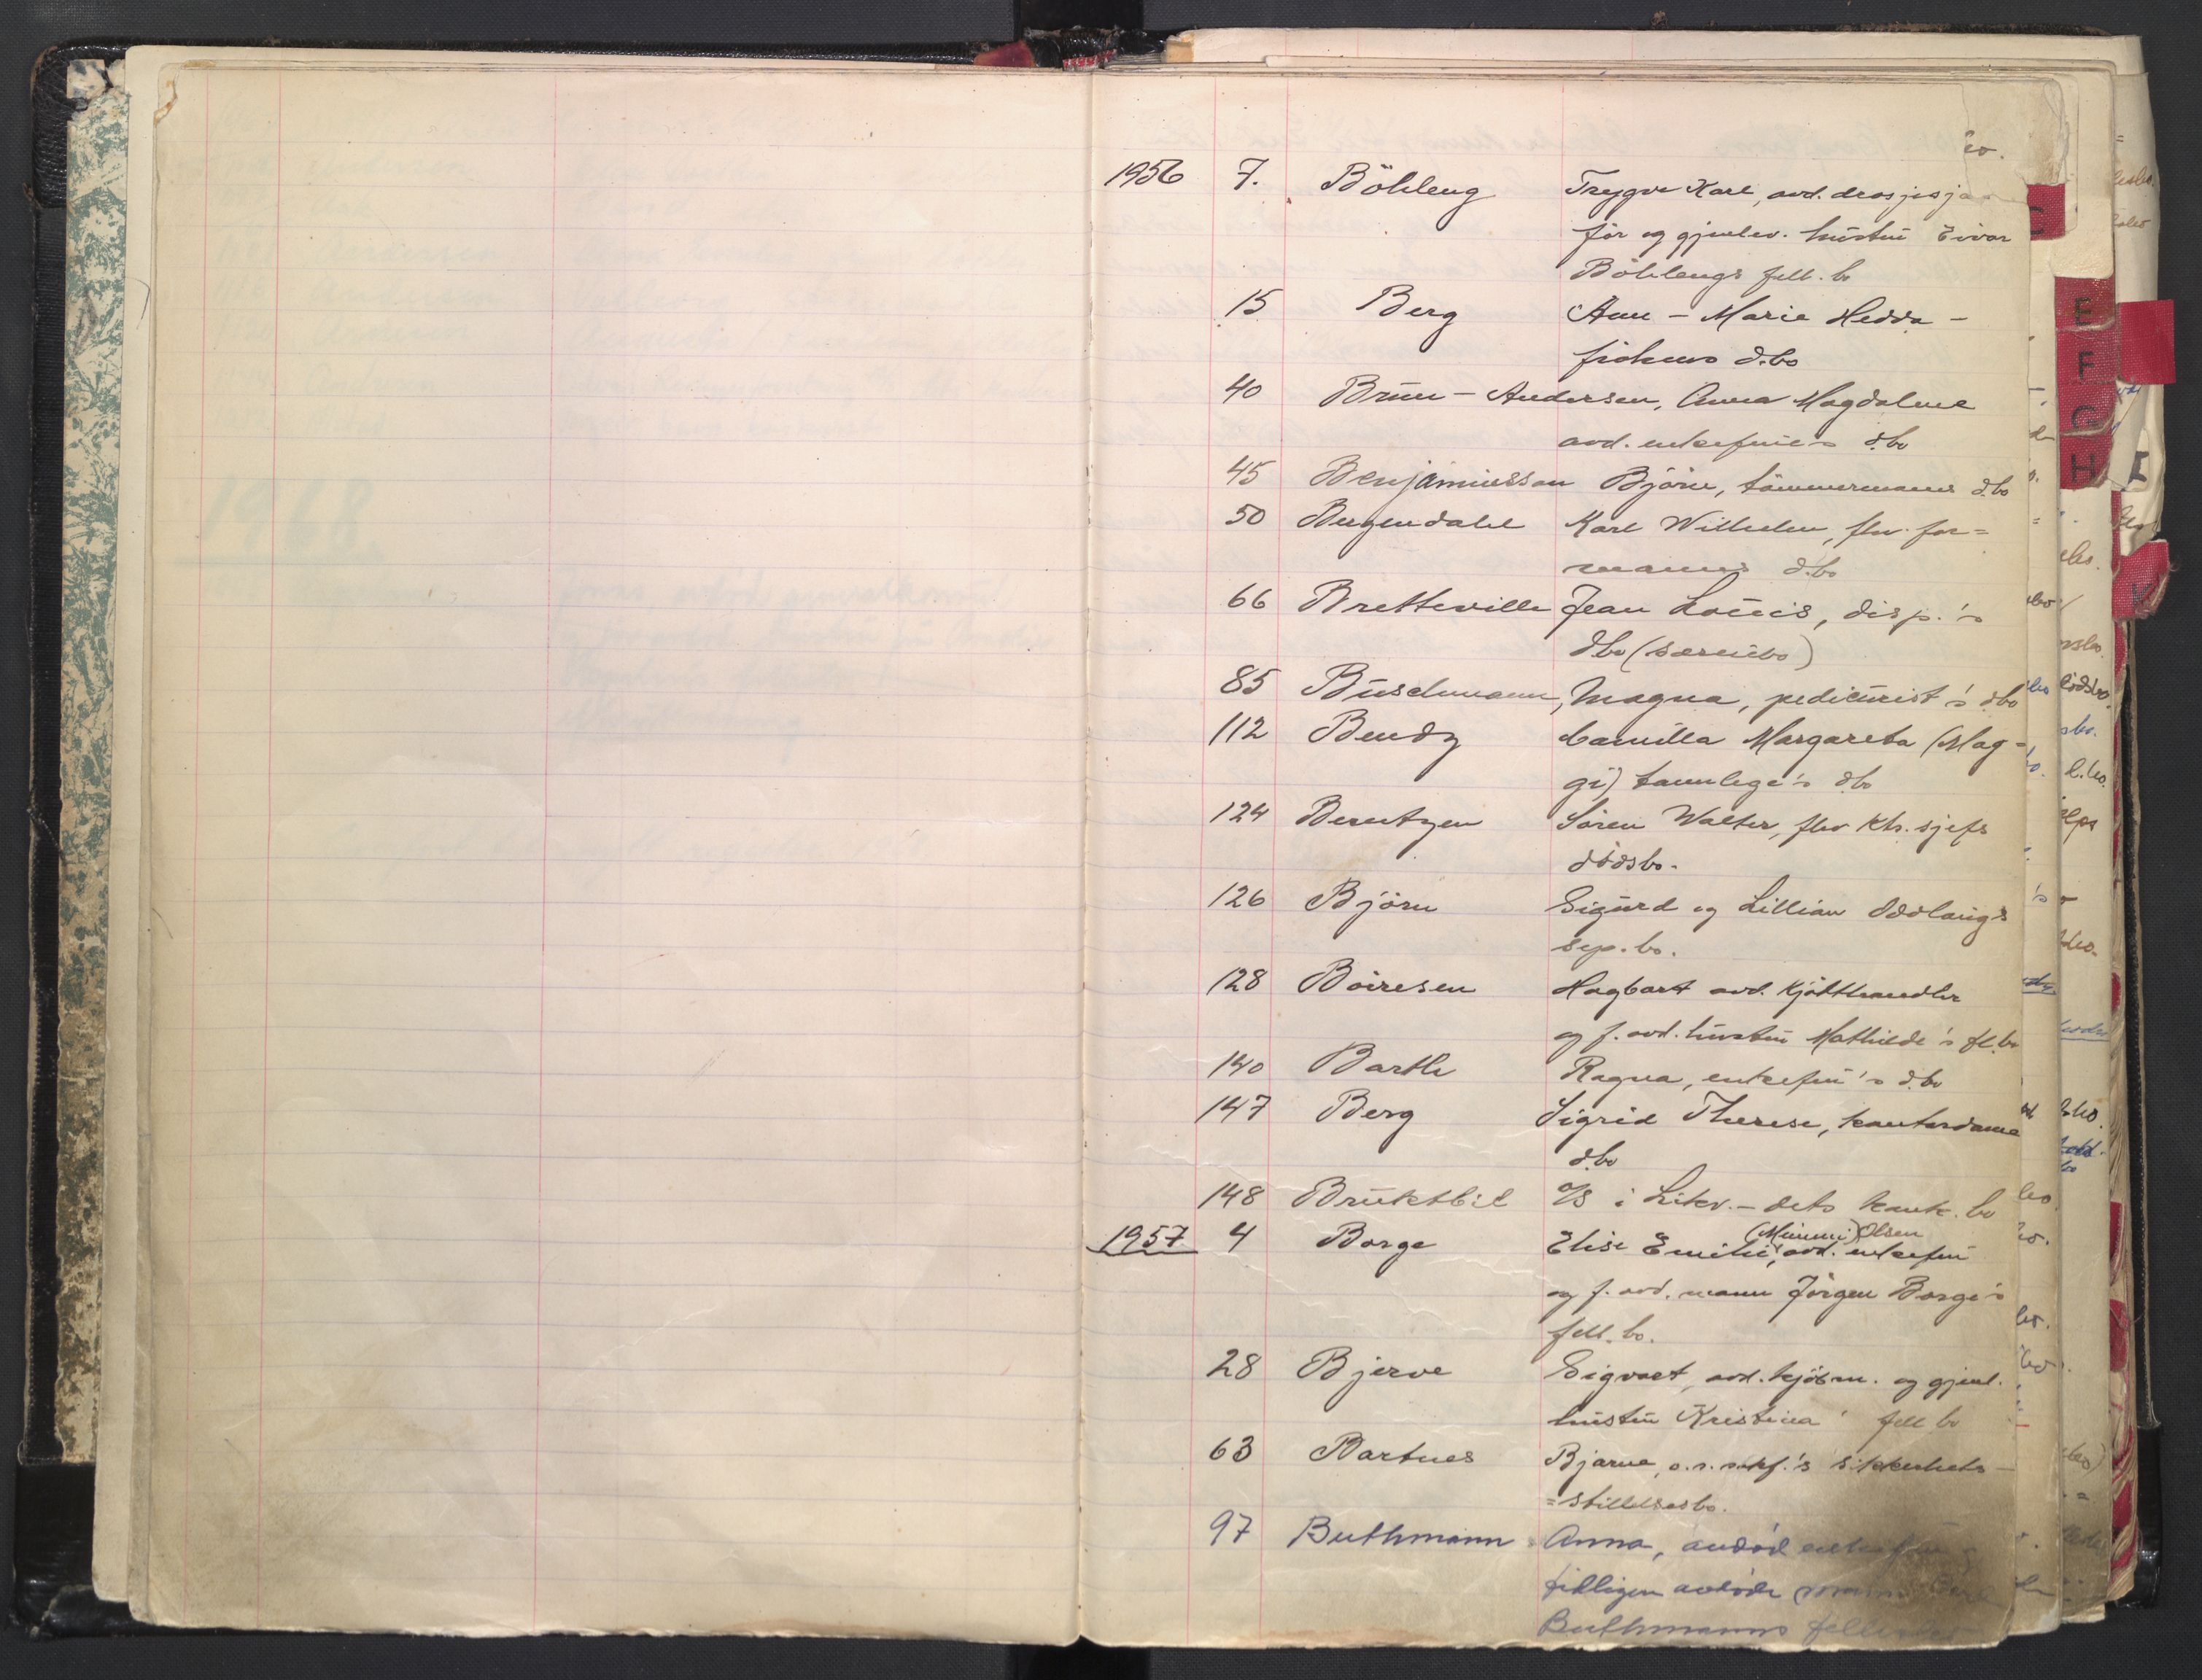 1956 7. Böhleng Trygve Karl, avd. drosjesja
før og gjenlev. hustru Eivor
Böhlengs fell. bo
15 Berg Ann-Marie Hedda -
frøkens d.bo
40 Brun-Andersen, Anna Magdalene
avd. enkefrues d.bo
45 Benjaminsson Björn, tømmermanns d.bo
50 Bergendahl Karl Wilhelm, fhv. for=
manns d.bo
66 Bretteville Jean Louis, disp.'s
d.bo (særeiebo)
85 Buschmann, Magna, pedicurist's d.bo
112 Bendz Camilla Margareta (Mag-
gi) tannlege's d.bo
124 Berentzen Sören Walter, fhv. ktr. sjefs
dødsbo.
126 Björn Sigurd og Lillian Oddlaugs
sep. bo.
128 Boiresen Hagbart avd. kjøtthandler
og f. avd. hustru Mathilde's fl.bo
140 Barth Ragna, enkefru's d.bo
147 Berg Sigrid Therese, kontordame
d.bo
148 Bruktbil A/S i Likv. - dets konk. bo
1957 4 Borge Elise Emilie (Mimmi) Olsen, avd. enkefru
og f. avd. mann Jörgen Borge's
fell. bo.
28 Bjerve Sigvart, avd. kjøbm. og gjenl.
hustru Kristina' fell bo
63 Bartnes Bjarne, o.r. sakf.'s sikkerhets-
=stillelsesbo.
97 Buthmann Anna, avdød enkefru
tidligere avdøde mann
Buthmanns felles
C
E
F
G
H
I
K